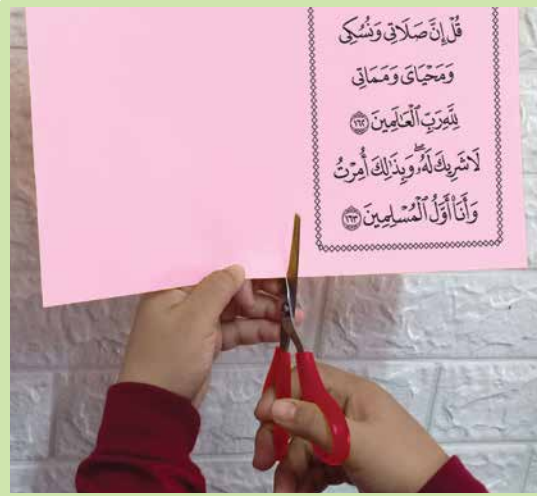 قُلْ إِنَّ صَلَاتِى وَنُسُكِى
وَمَحْيَاىَ وَمَمَاتِى
لِلَّهِ رَبِّ ٱلْعَـٰلَمِينَ ١٦٢
لَا شَرِيكَ لَهُۥ ۖ وَبِذَٰلِكَ أُمِرْتُ
وَأَنَا۠ أَوَّلُ ٱلْمُسْلِمِينَ ١٦٣